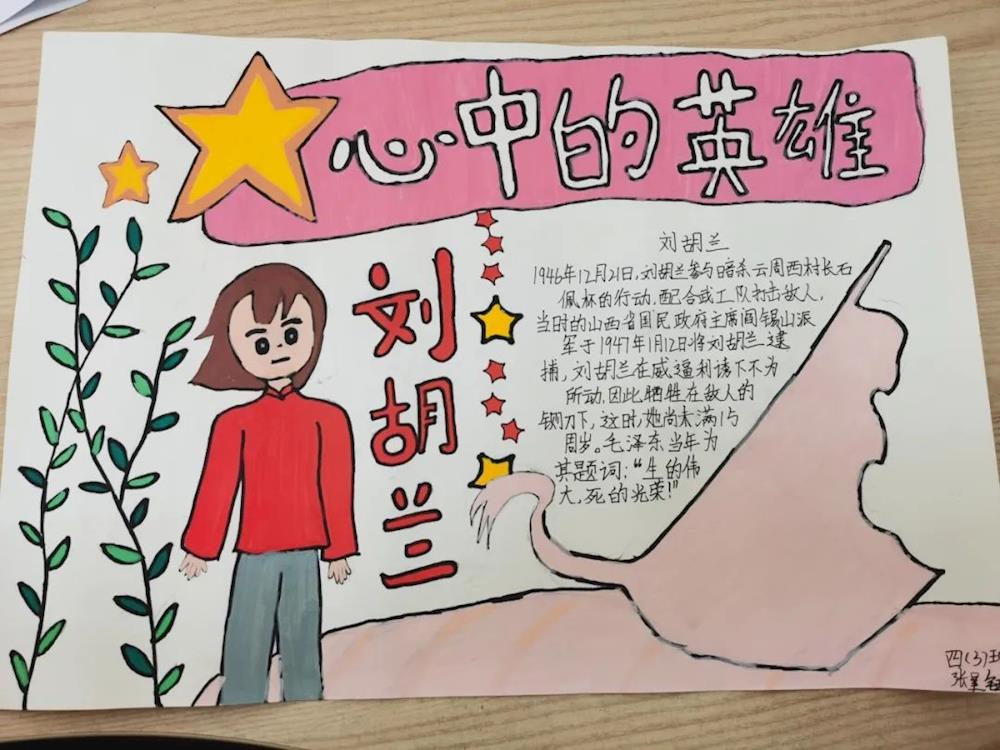 心中的英雄
刘胡兰
刘胡兰
1946年12月21日,刘胡兰参与暗杀云周西村长石
佩怀的行动,配合武工队打击敌人,
当时的山西省国民政府主席阎锡山派
军于1947年1月12日将刘胡兰逮
捕,刘胡兰在威逼利诱下不为
所动,因此牺牲在敌人的
铡刀下,这时,她尚未满15
周岁。毛泽东当年为
其题词:“生的伟
大,死的光荣!”
四(3)
张